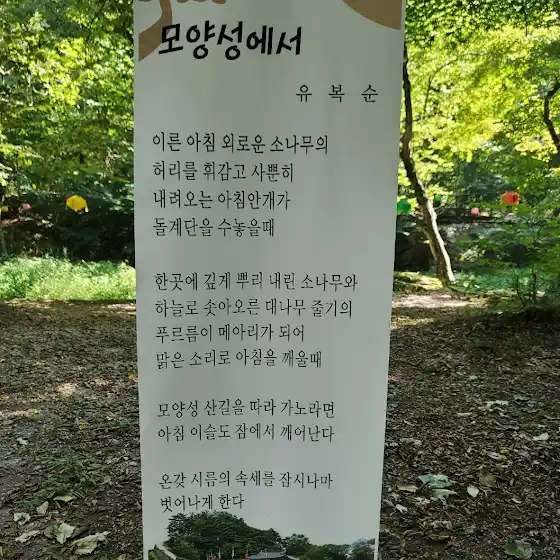 모양성에서
유 복 순
이른 아침 외로운 소나무의
허리를 휘감고 사뿐히
내려오는 아침안개가
돌계단을 수놓을때
한곳에 깊게 뿌리 내린 소나무와
하늘로 솟아오른 대나무 줄기의
푸르름이 메아리가 되어
맑은 소리로 아침을 깨울때
모양성 산길을 따라 가노라면
아침 이슬도 잠에서 깨어난다
온갖 시름의 속세를 잠시나마
벗어나게 한다